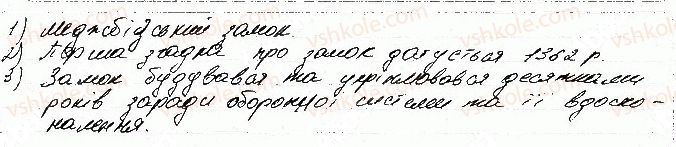 1) Меджибізський замок.
2) Перша згадка про замок датується 1362 р.
3) Замок будувався та укріплювався десятками
років заради оборонної системи та її вдоско-
налення.